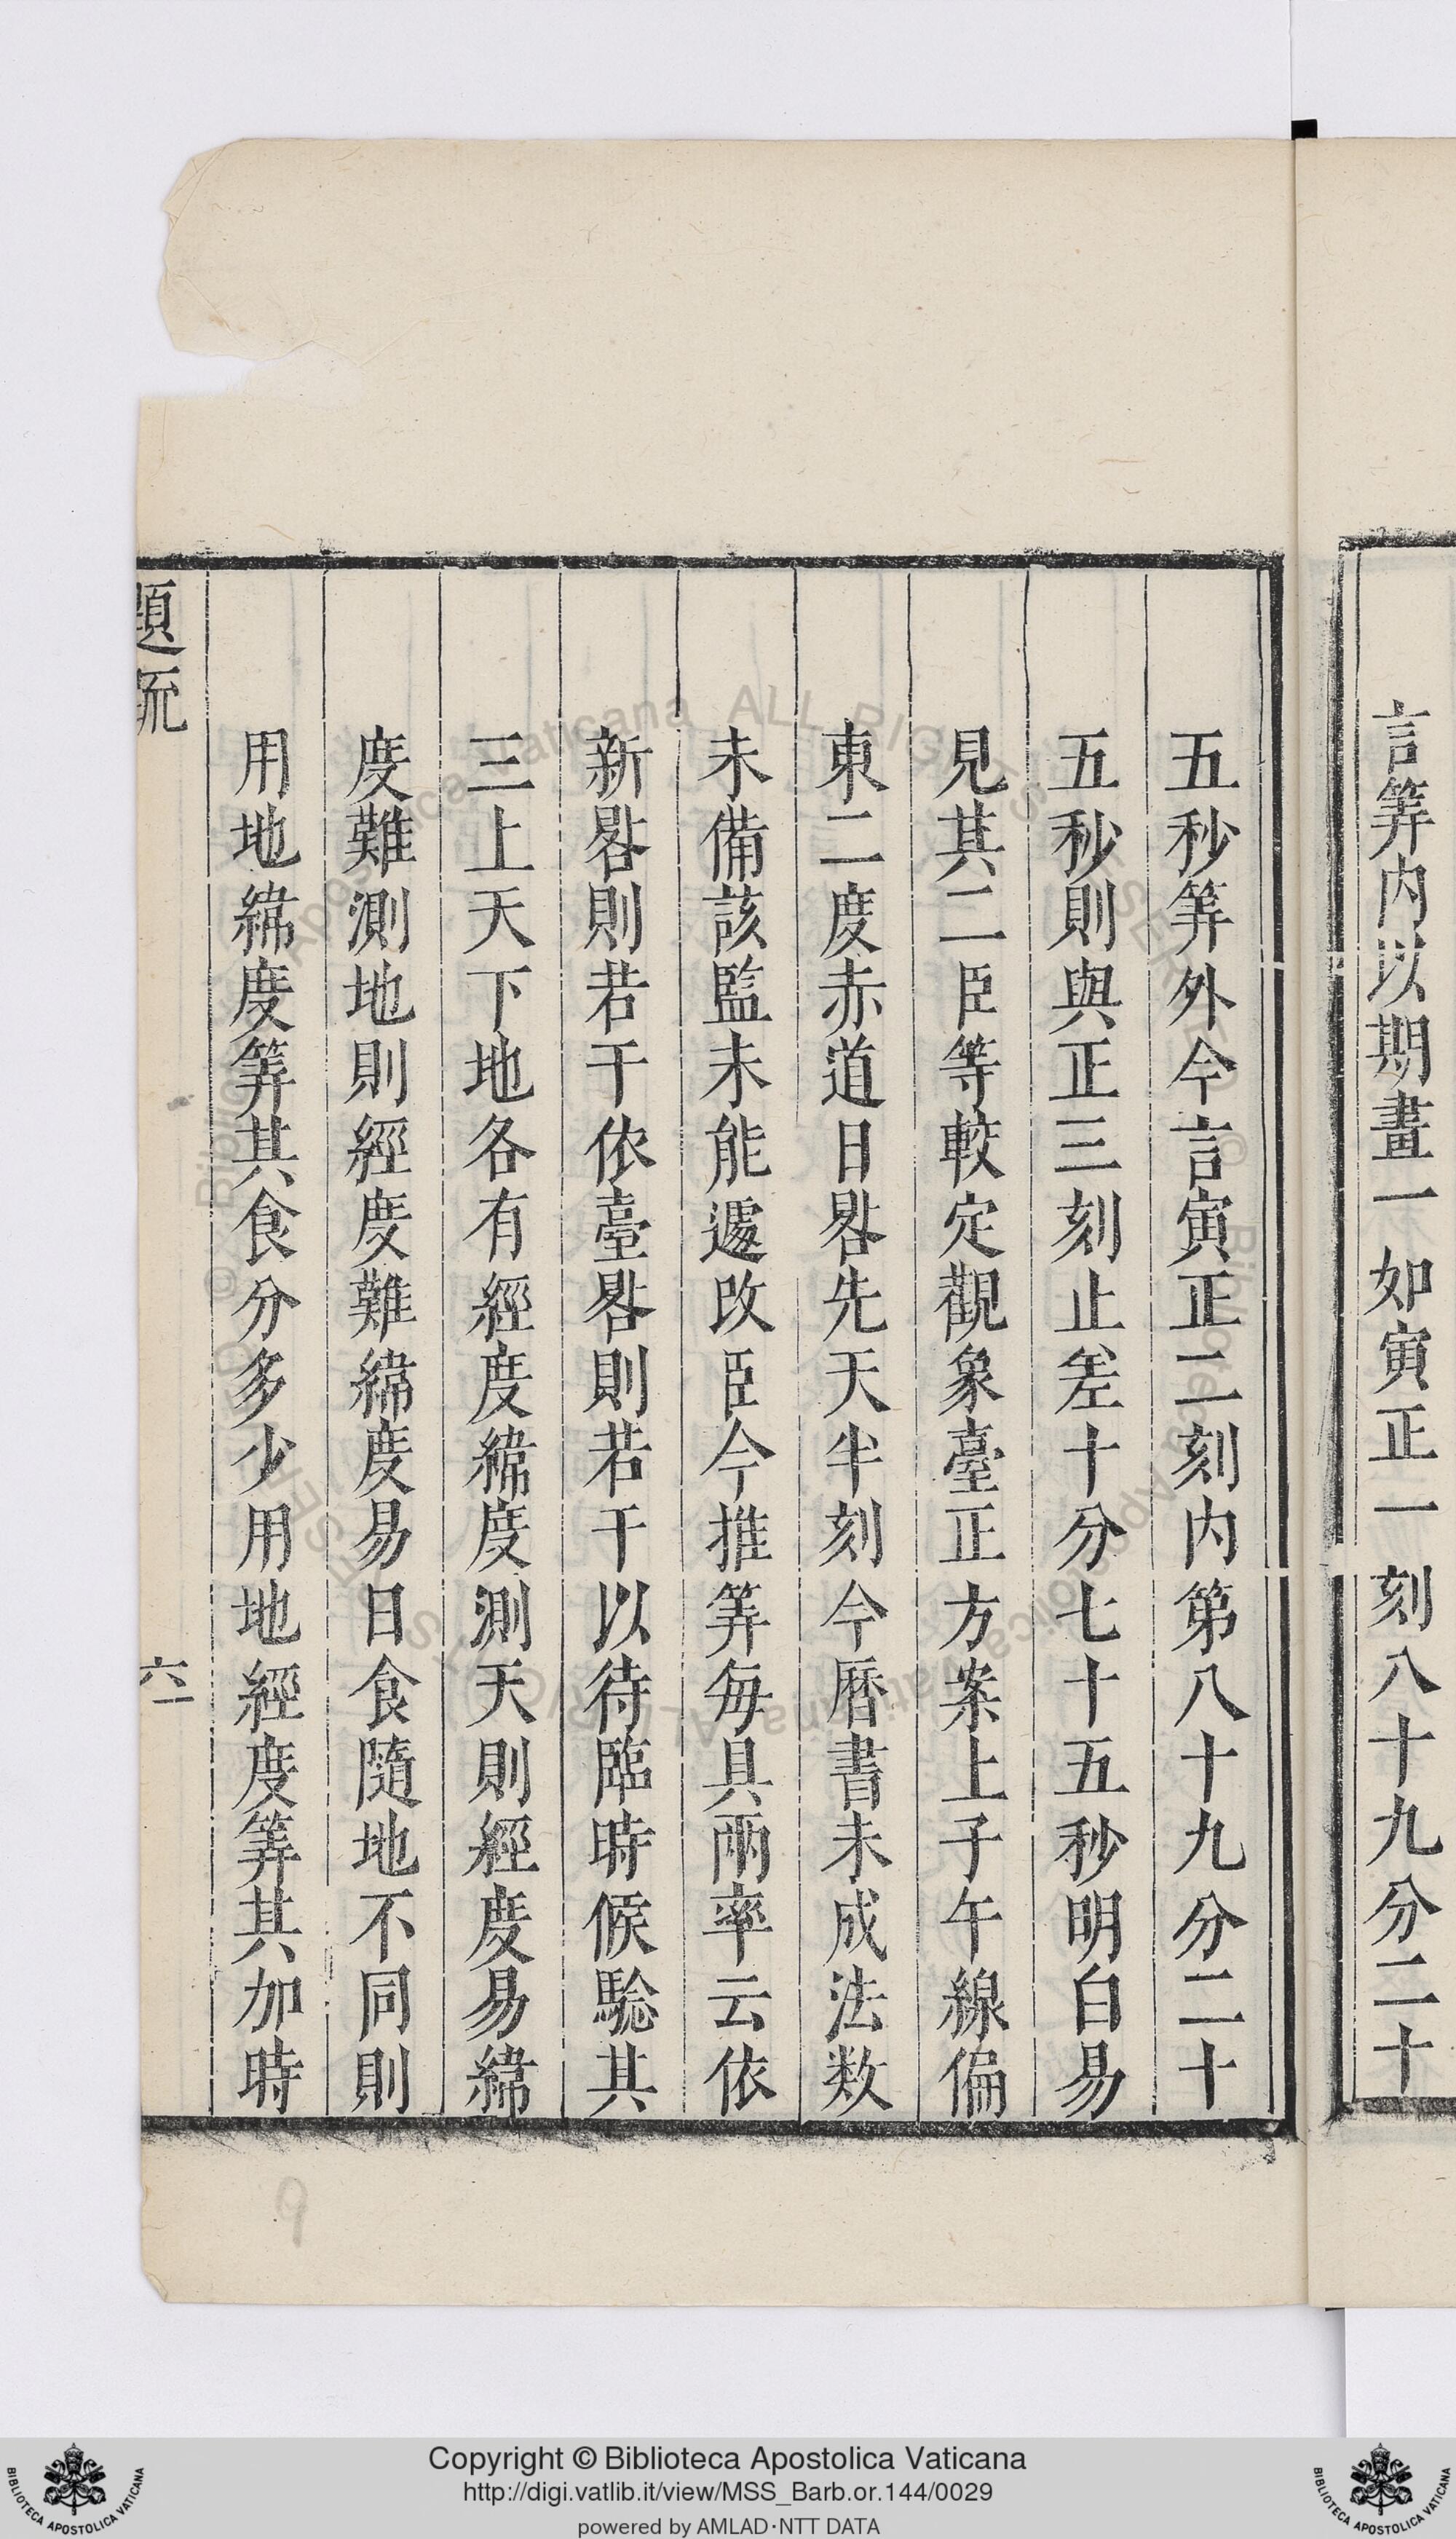 言筭内以期畫一如寅正一刻八十九分二十
五秒筭外今言寅正二刻内第八十九分二十
五秒則與正三刻止差十分七十五秒明白易
見其二臣等較定觀象臺正方案上子午線偏
東二度赤道日晷先天半刻今曆書未成法数
未備該監未能遽改臣今推筭每具兩率云依
新晷則若干依臺晷則若干以待臨時候騐其
三上天下地各有經度緯度測天則經度易緯
度難測地則經度難緯度易日食隨地不同則
用地緯度筭其食分多少用地經度筭其加時
題疏
六一
9
Copyright © Biblioteca Apostolica Vaticana
http://digi.vatlib.it/view/MSS_Barb.or.144/0029
powered by AMLAD·NTT DATA